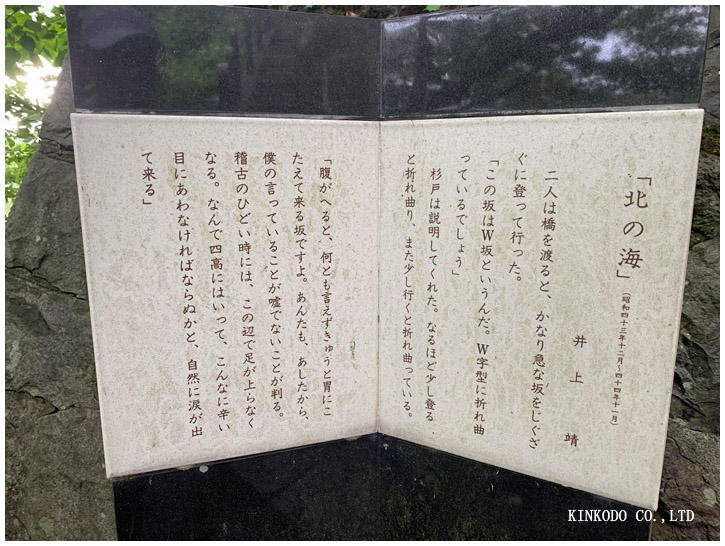 「北の海」(昭和四十三年十二月～四十四年十一月)
井上　靖
　二人は橋を渡ると、かなり急な坂をじぐざ
ぐに登って行った。
「この坂はW坂というんだ。W字型に折れ曲
っているでしょう」
　杉戸は説明してくれた。なるほど少し登る
と折れ曲り、また少し行くと折れ曲っている。
「腹がへると、何とも言えずきゅうと胃にこ
たえて来る坂ですよ。あんたも、あしたから、
僕の言っていることが嘘でないことが判る。
稽古のひどい時には、この辺で足が上らなく
なる。なんで四高にはいって、こんなに辛い
目にあわなければならぬかと、自然に涙が出
て来る」
KINKODO CO.,LTD